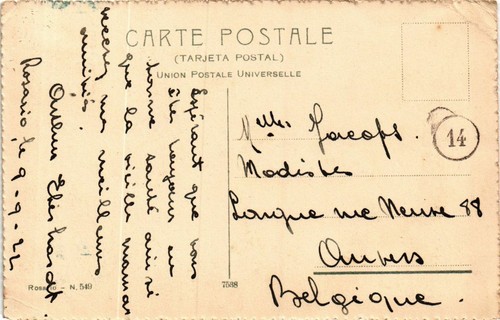 CARTE POSTALE
(TARJETA POSTAL)
UNION POSTALE UNIVERSELLE
Espérant que vous
êtes toujours en
bonne santé ainsi
que la vieille maman
recevez mes meilleures
amitiés.
Rosario le, 9-9-22
Melles Jacops.
Modistes
Longue rue Neuve 88
Anvers
Belgique.
14
Rosario - N. 549
7588